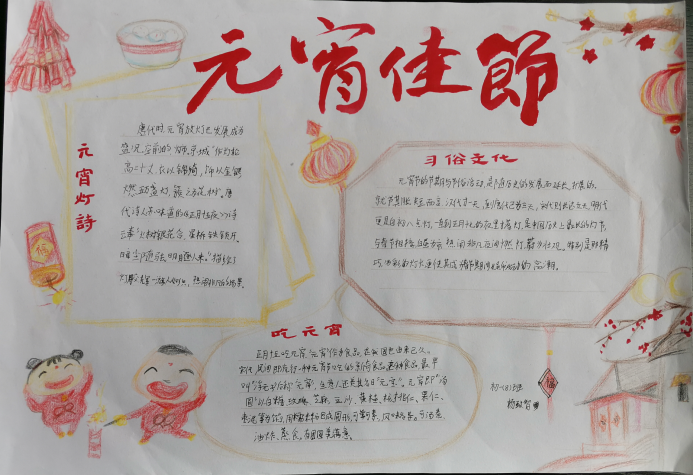 元宵佳節
元宵灯詩
唐代时元宵放灯已发展成为
盛况空前的
高二十丈,衣以锦绮,饰以金银
燃五万盏灯,簇之为花树"。唐
代诗人苏味道的《正月十五夜》
火树银花合,星桥铁锁开。
暗尘随马去,明月逐人来。"描绘了
习俗文化
元宵节的节期与节俗活动,是随历史的发展而延长、扩展的。
就节期长短而言,汉代才一天,到唐代已为三天,宋代则长达五天,明代
更是自初八点灯,一直到正月十七的夜里才落灯,
与春节相接,白昼为市,热闹非凡,夜间燃灯,蔚为壮观。特别是那精
巧、多彩的灯火,更使其成为春节期间娱乐活动的高潮。
吃元宵
正月十五吃元宵,"元宵"作为食品,在我国也由来已久。
宋代,民间即流行一种元宵节吃的新奇食品。这种食品,最早
叫"浮元子"后称"元宵",生意人还美其名曰"元宝"。元宵即"汤
圆"以白糖、玫瑰、芝麻、豆沙、黄桂、核桃仁、果仁、
枣泥等为馅,用糯米粉包成圆形,可荤可素,风味各异。可汤煮、
油炸、蒸食,有团圆美满之意。
福
福